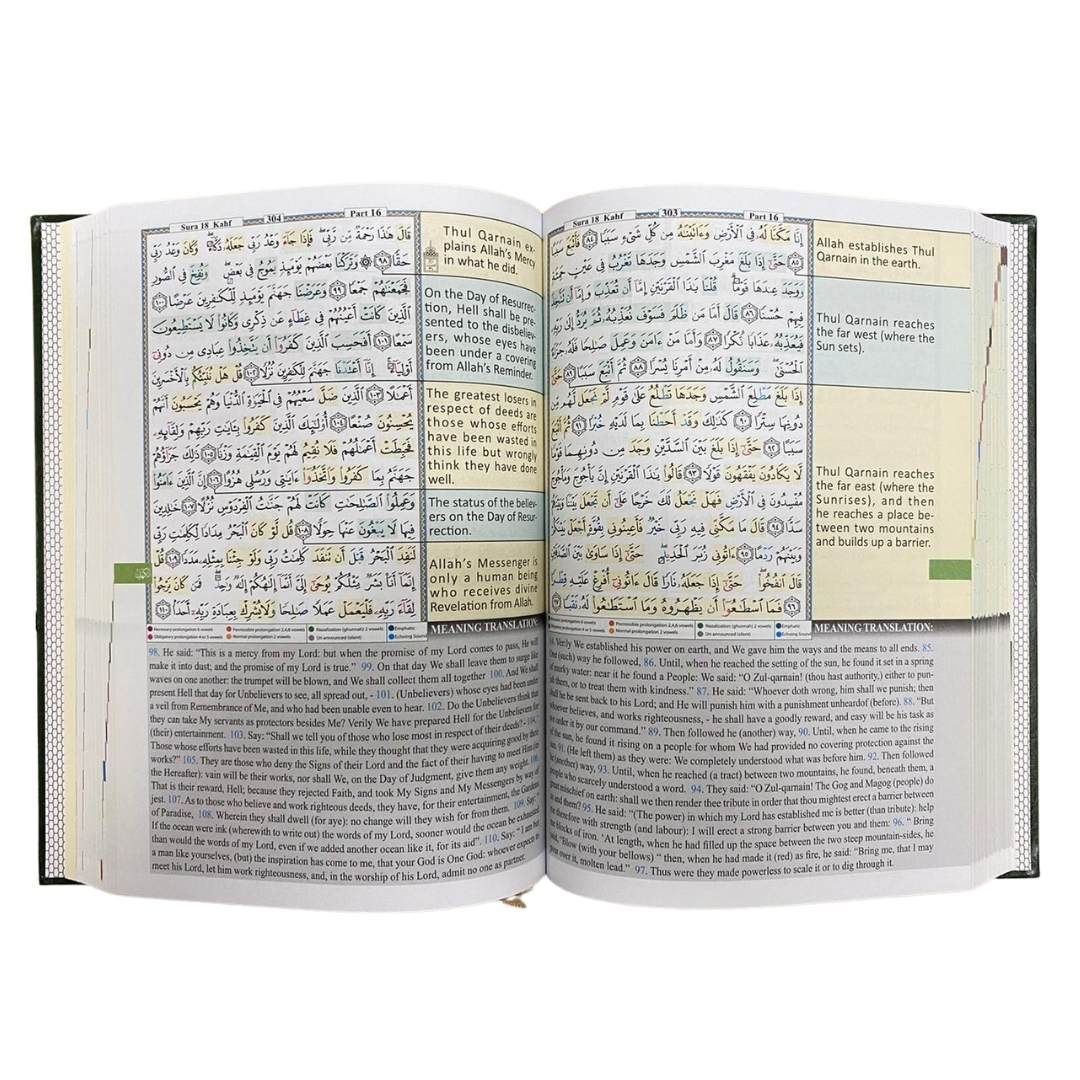 Sura 18 Kahf 303 Part 16
إِنَّا مَكَّنَّا لَهُۥ فِي ٱلْأَرْضِ وَءَاتَيْنَٰهُ مِن كُلِّ شَيْءٍ سَبَبًا ﴿٨٤﴾ فَأَتْبَعَ سَبَبًا
﴿٨٥﴾ حَتَّىٰٓ إِذَا بَلَغَ مَغْرِبَ ٱلشَّمْسِ وَجَدَهَا تَغْرُبُ فِي عَيْنٍ حَمِئَةٍ
وَوَجَدَ عِندَهَا قَوْمًا ۗ قُلْنَا يَٰذَا ٱلْقَرْنَيْنِ إِمَّآ أَن تُعَذِّبَ وَإِمَّآ أَن تَتَّخِذَ
فِيهِمْ حُسْنًا ﴿٨٦﴾ قَالَ أَمَّا مَن ظَلَمَ فَسَوْفَ نُعَذِّبُهُۥ ثُمَّ يُرَدُّ إِلَىٰ رَبِّهِۦ
فَيُعَذِّبُهُۥ عَذَابًا نُّكْرًا ﴿٨٧﴾ وَأَمَّا مَنْ ءَامَنَ وَعَمِلَ صَٰلِحًا فَلَهُۥ جَزَآءً
ٱلْحُسْنَىٰ ۖ وَسَنَقُولُ لَهُۥ مِنْ أَمْرِنَا يُسْرًا ﴿٨٨﴾ ثُمَّ أَتْبَعَ سَبَبًا ﴿٨٩﴾ حَتَّىٰٓ
إِذَا بَلَغَ مَطْلِعَ ٱلشَّمْسِ وَجَدَهَا تَطْلُعُ عَلَىٰ قَوْمٍ لَّمْ نَجْعَل لَّهُم مِّن
دُونِهَا سِتْرًا ﴿٩٠﴾ كَذَٰلِكَ وَقَدْ أَحَطْنَا بِمَا لَدَيْهِ خُبْرًا ﴿٩١﴾ ثُمَّ أَتْبَعَ
سَبَبًا ﴿٩٢﴾ حَتَّىٰٓ إِذَا بَلَغَ بَيْنَ ٱلسَّدَّيْنِ وَجَدَ مِن دُونِهِمَا قَوْمًا
لَّا يَكَادُونَ يَفْقَهُونَ قَوْلًا ﴿٩٣﴾ قَالُوا۟ يَٰذَا ٱلْقَرْنَيْنِ إِنَّ يَأْجُوجَ وَمَأْجُوجَ
مُفْسِدُونَ فِي ٱلْأَرْضِ فَهَلْ نَجْعَلُ لَكَ خَرْجًا عَلَىٰٓ أَن تَجْعَلَ بَيْنَنَا وَبَيْنَهُمْ
سَدًّا ﴿٩٤﴾ قَالَ مَا مَكَّنِّي فِيهِ رَبِّي خَيْرٌ فَأَعِينُونِي بِقُوَّةٍ أَجْعَلْ بَيْنَكُمْ
وَبَيْنَهُمْ رَدْمًا ﴿٩٥﴾ ءَاتُونِي زُبَرَ ٱلْحَدِيدِ ۖ حَتَّىٰٓ إِذَا سَاوَىٰ بَيْنَ ٱلصَّدَفَيْنِ
قَالَ ٱنفُخُوا۟ ۖ حَتَّىٰٓ إِذَا جَعَلَهُۥ نَارًا قَالَ ءَاتُونِيٓ أُفْرِغْ عَلَيْهِ قِطْرًا
﴿٩٦﴾ فَمَا ٱسْطَٰعُوٓا۟ أَن يَظْهَرُوهُ وَمَا ٱسْتَطَٰعُوا۟ لَهُۥ نَقْبًا ﴿٩٧﴾
Allah establishes Thul
Qarnain in the earth.
Thul Qarnain reaches
the far west (where the
Sun sets).
Thul Qarnain reaches
the far east (where the
Sunrises), and then
he reaches a place be-
tween two mountains
and builds up a barrier.
MEANING TRANSLATION:
Verily We established his power on earth, and We gave him the ways and the means to all ends. 85.
(such) way he followed, 86. Until, when he reached the setting of the sun, he found it set in a spring
of murky water: near it he found a People: We said: "O Zul-qarnain! (thou hast authority,) either to pun-
them, or to treat them with kindness." 87. He said: "Whoever doth wrong, him shall we punish; then
shall he be sent back to his Lord; and He will punish him with a punishment unheardof (before). 88. "But
whoever believes, and works righteousness, - he shall have a goodly reward, and easy will be his task as
we order it by our command." 89. Then followed he (another) way, 90. Until, when he came to the rising
of the sun, he found it rising on a people for whom We had provided no covering protection against the
sun. 91. (He left them) as they were: We completely understood what was before him. 92. Then followed
he (another) way, 93. Until, when he reached (a tract) between two mountains, he found, beneath them, a
people who scarcely understood a word. 94. They said: "O Zul-qarnain! The Gog and Magog (people) do
great mischief on earth: shall we then render thee tribute in order that thou mightest erect a barrier between
us and them? 95. He said: "(The power) in which my Lord has established me is better (than tribute): help
me therefore with strength (and labour): I will erect a strong barrier between you and them: 96. " Bring
me blocks of iron. 'At length, when he had filled up the space between the two steep mountain-sides, he
said, "Blow (with your bellows) " then, when he had made it (red) as fire, he said: "Bring me, that I may
pour over it, molten lead." 97. Thus were they made powerless to scale it or to dig through it.
Sura 18 Kahf 304 Part 16
قَالَ هَٰذَا رَحْمَةٌ مِّن رَّبِّي ۖ فَإِذَا جَآءَ وَعْدُ رَبِّي جَعَلَهُۥ دَكَّآءَ ۖ وَكَانَ وَعْدُ رَبِّي
حَقًّا ﴿٩٨﴾ ۞ وَتَرَكْنَا بَعْضَهُمْ يَوْمَئِذٍ يَمُوجُ فِي بَعْضٍ ۖ وَنُفِخَ فِي ٱلصُّورِ
فَجَمَعْنَٰهُمْ جَمْعًا ﴿٩٩﴾ وَعَرَضْنَا جَهَنَّمَ يَوْمَئِذٍ لِّلْكَٰفِرِينَ عَرْضًا ﴿١٠٠﴾
ٱلَّذِينَ كَانَتْ أَعْيُنُهُمْ فِي غِطَآءٍ عَن ذِكْرِي وَكَانُوا۟ لَا يَسْتَطِيعُونَ
سَمْعًا ﴿١٠١﴾ أَفَحَسِبَ ٱلَّذِينَ كَفَرُوٓا۟ أَن يَتَّخِذُوا۟ عِبَادِي مِن دُونِيٓ
أَوْلِيَآءَ ۚ إِنَّآ أَعْتَدْنَا جَهَنَّمَ لِلْكَٰفِرِينَ نُزُلًا ﴿١٠٢﴾ قُلْ هَلْ نُنَبِّئُكُم بِٱلْأَخْسَرِينَ
أَعْمَٰلًا ﴿١٠٣﴾ ٱلَّذِينَ ضَلَّ سَعْيُهُمْ فِي ٱلْحَيَوٰةِ ٱلدُّنْيَا وَهُمْ يَحْسَبُونَ أَنَّهُمْ
يُحْسِنُونَ صُنْعًا ﴿١٠٤﴾ أُو۟لَٰٓئِكَ ٱلَّذِينَ كَفَرُوا۟ بِـَٔايَٰتِ رَبِّهِمْ وَلِقَآئِهِۦ
فَحَبِطَتْ أَعْمَٰلُهُمْ فَلَا نُقِيمُ لَهُمْ يَوْمَ ٱلْقِيَٰمَةِ وَزْنًا ﴿١٠٥﴾ ذَٰلِكَ جَزَآؤُهُمْ
جَهَنَّمُ بِمَا كَفَرُوا۟ وَٱتَّخَذُوٓا۟ ءَايَٰتِي وَرُسُلِي هُزُوًا ﴿١٠٦﴾ إِنَّ ٱلَّذِينَ ءَامَنُوا۟
وَعَمِلُوا۟ ٱلصَّٰلِحَٰتِ كَانَتْ لَهُمْ جَنَّٰتُ ٱلْفِرْدَوْسِ نُزُلًا ﴿١٠٧﴾ خَٰلِدِينَ
فِيهَا لَا يَبْغُونَ عَنْهَا حِوَلًا ﴿١٠٨﴾ قُل لَّوْ كَانَ ٱلْبَحْرُ مِدَادًا لِّكَلِمَٰتِ رَبِّي
لَنَفِدَ ٱلْبَحْرُ قَبْلَ أَن تَنفَدَ كَلِمَٰتُ رَبِّي وَلَوْ جِئْنَا بِمِثْلِهِۦ مَدَدًا ﴿١٠٩﴾ قُلْ
إِنَّمَآ أَنَا۠ بَشَرٌ مِّثْلُكُمْ يُوحَىٰٓ إِلَيَّ أَنَّمَآ إِلَٰهُكُمْ إِلَٰهٌ وَٰحِدٌ ۖ فَمَن كَانَ يَرْجُوا۟
لِقَآءَ رَبِّهِۦ فَلْيَعْمَلْ عَمَلًا صَٰلِحًا وَلَا يُشْرِكْ بِعِبَادَةِ رَبِّهِۦٓ أَحَدًۢا ﴿١١٠﴾
Thul Qarnain ex-
plains Allah's Mercy
in what he did.
On the Day of Resurrec-
tion, Hell shall be pre-
sented to the disbeliev-
ers, whose eyes have
been under a covering
from Allah's Reminder.
The greatest losers in
respect of deeds are
those whose efforts
have been wasted in
this life but wrongly
think they have done
well.
The status of the believ-
ers on the Day of Resur-
rection.
Allah's Messenger is
only a human being
who receives divine
Revelation from Allah.
MEANING TRANSLATION:
98. He said: "This is a mercy from my Lord: but when the promise of my Lord comes to pass, He will
make it into dust; and the promise of my Lord is true." 99. On that day We shall leave them to surge like
waves on one another: the trumpet will be blown, and We shall collect them all together 100. And We shall
present Hell that day for Unbelievers to see, all spread out, - 101. (Unbelievers) whose eyes had been under
a veil from Remembrance of Me, and who had been unable even to hear. 102. Do the Unbelievers think that
they can take My servants as protectors besides Me? Verily We have prepared Hell for the Unbelievers for
(their) entertainment. 103. Say: "Shall we tell you of those who lose most in respect of their deeds? - 104. "
Those whose efforts have been wasted in this life, while they thought that they were acquiring good by their
works?" 105. They are those who deny the Signs of their Lord and the fact of their having to meet Him (in
the Hereafter): vain will be their works, nor shall We, on the Day of Judgment, give them any weight. 106.
That is their reward, Hell; because they rejected Faith, and took My Signs and My Messengers by way of
jest. 107. As to those who believe and work righteous deeds, they have, for their entertainment, the Gardens
of Paradise, 108. Wherein they shall dwell (for aye): no change will they wish for from them. 109. Say: "
If the ocean were ink (wherewith to write out) the words of my Lord, sooner would the ocean be exhausted
than would the words of my Lord, even if we added another ocean like it, for its aid". 110. Say: "I am but
a man like yourselves, (but) the inspiration has come to me, that your God is One God: whoever expects to
meet his Lord, let him work righteousness, and, in the worship of his Lord, admit no one as partner.